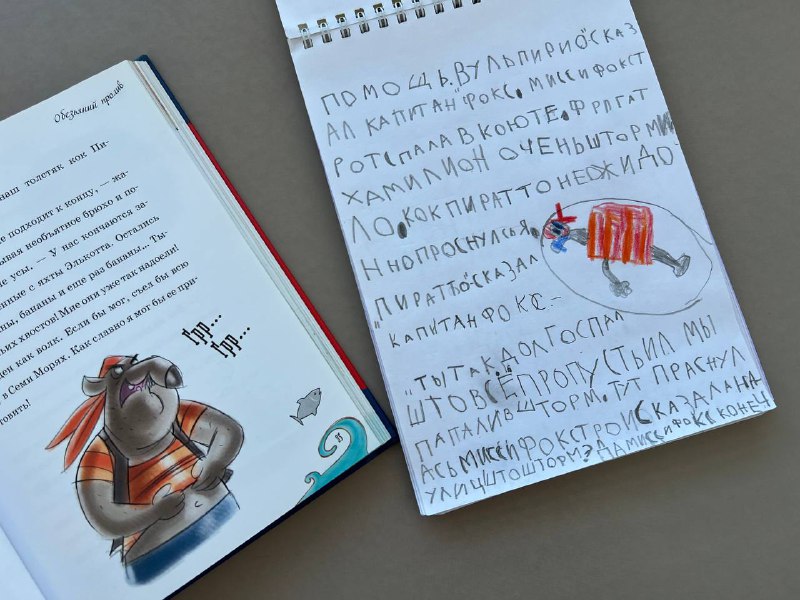 Обезьяний пролив
наш толстяк как Пи-
е подходит к концу, — жа-
ывая необъятное брюхо и по-
е усы. — У нас кончаются за-
нные с яхты Элькотта. Остались
ны, бананы и еще раз бананы... Ты-
ьих хвостов! Мне они уже так надоели!
ен как волк. Если бы мог, съел бы всю
в Семи Морях. Как славно я мог бы ее при-
товить!
Грр...
Грр...
ПОМОЩЬ. ВУЛЬПИРИО" СКАЗ
АЛ КАПИТАН ФОКС. МИССИ ФОКСТ
РОТ СПАЛА В КОЮТЕ. ФРПГАТ
ХАМИЛИОН ОЧЕНЬ ШТОРМИ
ЛО, КОК ПИРАТТО НЕОЖИДО
ННО ПРОСНУЛСЬЯ.
ПИРАТТО" СКАЗАЛ
КАПИТАН ФОКС-
"ТЫ ТАК ДОЛГО СПАЛ
ШТО ВСЁ ПРОПУСТЬИЛ МЫ
ПАПАЛИ В ШТОРМ. ТУТ ПРАСНУЛ
АСЬ МИССИ ФОКСТРОТ И СКАЗАЛА НА
УЛИЦ ШТО ШТОРМ? ДА МИССИ ФОКС КОНЕЦ